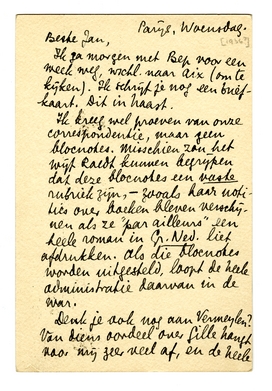 Parijs, Woensdag.
[1936?]
Beste Jan,
Ik ga morgen met Bep voor een
week weg, wschl. naar Aix (om te
kijken). Ik schrijf je nog een brief-
kaart. Dit in haast.
Ik kreeg wel proeven van onze
correspondentie, maar geen
blocnotes. Misschien zou het
wijf Raedt kunnen begrijpen
dat deze blocnotes een vaste
rubriek zijn, — zooals haar noti-
ties over boeken bleven verschij-
nen als ze "par ailleurs" een
heele roman in Gr. Ned. liet
afdrukken. Als die blocnotes
worden uitgesteld, loopt de heele
administratie daarvan in de
war.
Denk je ook nog aan Vermeylen?
Van diens oordeel over Gille hangt
voor mij zeer veel af, en de heele